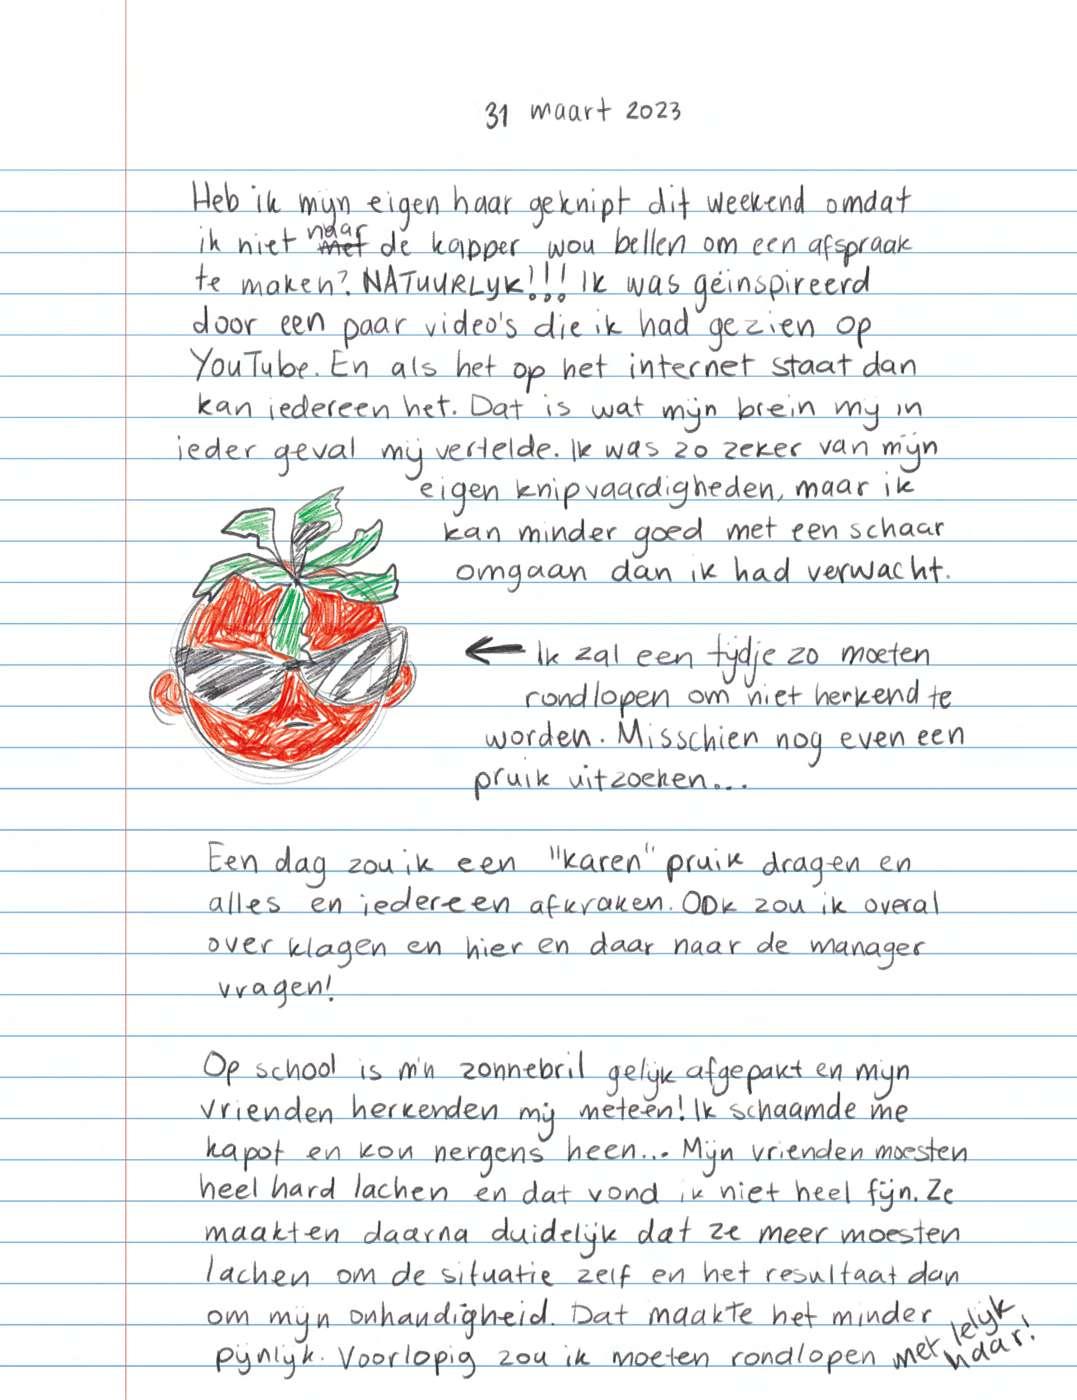 31 maart 2023
Heb ik mijn eigen haar geknipt dit weekend omdat
ik niet naar de kapper wou bellen om een afspraak
te maken? NATUURLIJK!!! Ik was geïnspireerd
door een paar video's die ik had gezien op
YouTube. En als het op het internet staat dan
kan iedereen het. Dat is wat mijn brein mij in
ieder geval mij vertelde. Ik was zo zeker van mijn
eigen knipvaardigheden, maar ik
kan minder goed met een schaar
omgaan dan ik had verwacht.
← Ik zal een tijdje zo moeten
rondlopen om niet herkend te
worden. Misschien nog even een
pruik uitzoeken...
Een dag zou ik een "karen" pruik dragen en
alles en iedereen afkraken. Ook zou ik overal
over klagen en hier en daar naar de manager
vragen!
Op school is m'n zonnebril gelijk afgepakt en mijn
vrienden herkenden mij meteen! Ik schaamde me
kapot en kon nergens heen... Mijn vrienden moesten
heel hard lachen en dat vond ik niet heel fijn. Ze
maakten daarna duidelijk dat ze meer moesten
lachen om de situatie zelf en het resultaat dan
om mijn onhandigheid. Dat maakte het minder
pijnlijk. Voorlopig zou ik moeten rondlopen met lelijk
haar!